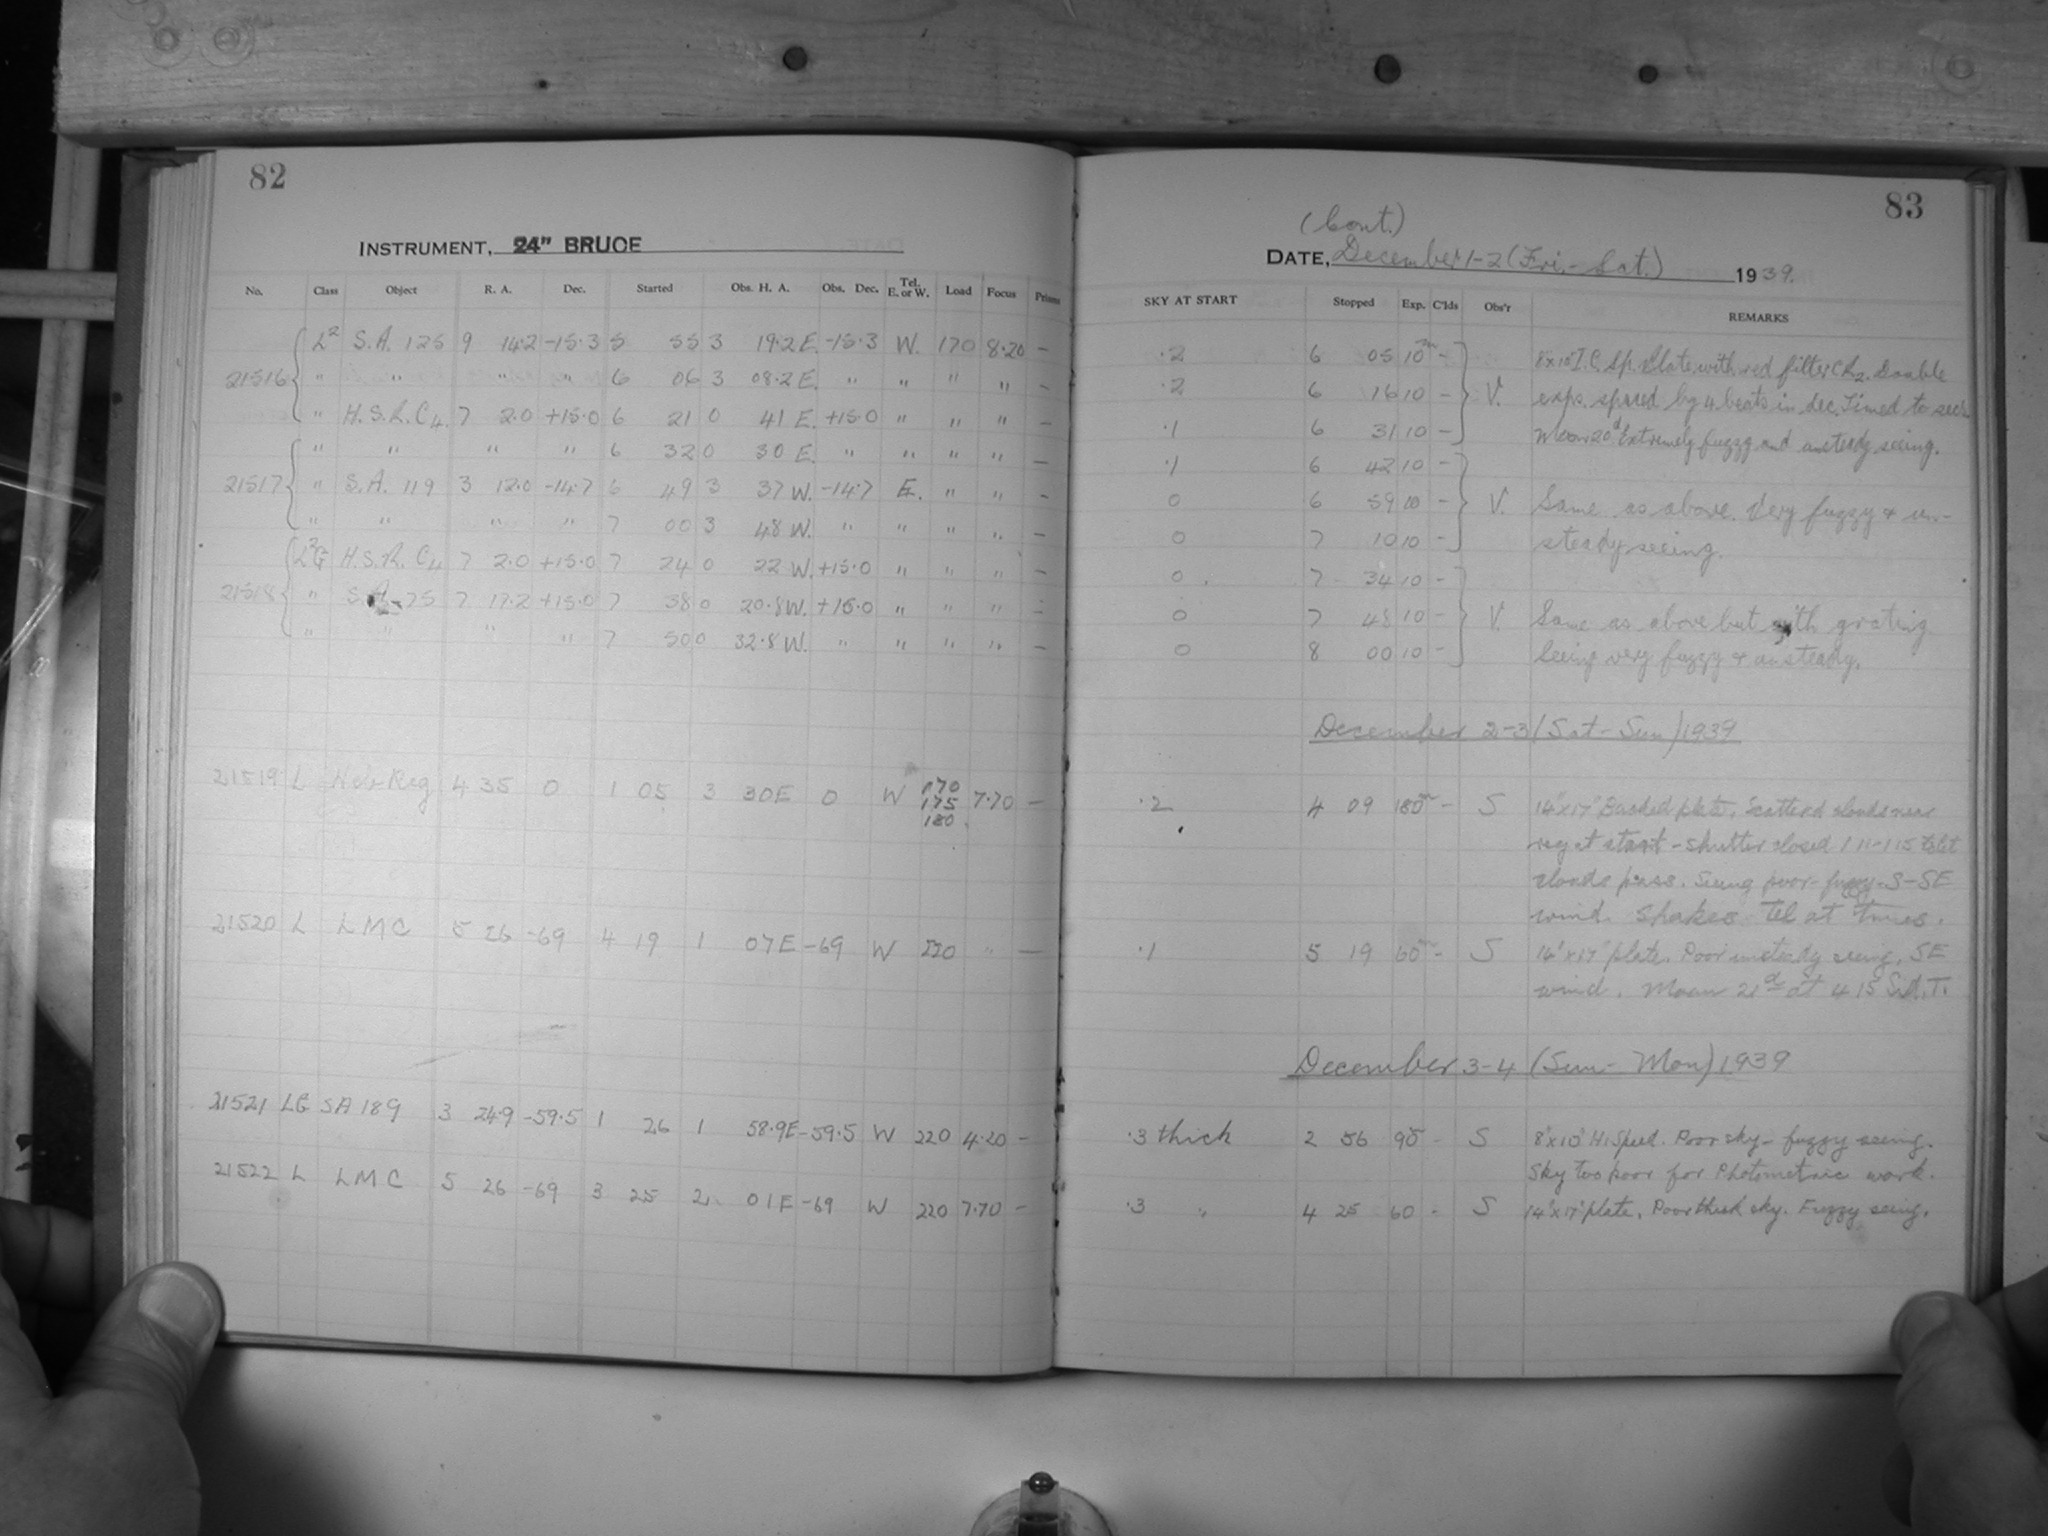 82
INSTRUMENT, 24" BRUCE
No. Class Object R. A. Dec. Started Obs. H. A. Obs. Dec. Tel. E. or W. Load Focus Prisms
L2 S.A. 125 9 14.2 -15.3 5 55 3 19.2 E. -15.3 W. 170 8.20 -
21516 " " " " 6 06 3 08.2 E. " " " " -
" H.S.R. C4 7 2.0 +15.0 6 21 0 41 E. +15.0 " " " -
" " " " 6 32 0 30 E. " " " " -
21517 " S.A. 119 3 12.0 -14.7 6 49 3 37 W. -14.7 E. " " -
" " " " 7 00 3 48 W. " " " " -
L2G H.S.R. C4 7 2.0 +15.0 7 24 0 22 W. +15.0 " " " -
21518 " S.A. 75 7 17.2 +15.0 7 38 0 20.8 W. +15.0 " " " -
" " " " 7 50 0 32.8 W. " " " " -
21519 L Reg 4 35 0 1 05 3 30 E 0 W 170 7.70 -
175
180
21520 L LMC 5 26 -69 4 19 1 07 E -69 W 220 " -
21521 LG SA 189 3 24.9 -59.5 1 26 1 58.9 E -59.5 W 220 4.20 -
21522 L LMC 5 26 -69 3 25 2 01 E -69 W 220 7.70 -
83
(Cont.)
DATE, December 1-2 (Fri.-Sat.) 1939.
SKY AT START Stopped Exp. C'lds Obs'r REMARKS
.2 6 05 10m - 8"x10" I.C. Sp. Plate with red filter. Double
.2 6 16 10 - V. exps. spaced by 4 beats in dec. Timed to sec.
.1 6 31 10 - Moon 20d. Extremely fuzzy and unsteady seeing.
.1 6 42 10 -
0 6 59 10 - V. Same as above. Very fuzzy & un-
0 7 10 10 - steady seeing.
0 7 34 10 -
0 7 48 10 - V. Same as above but with grating
0 8 00 10 - Seeing very fuzzy & unsteady.
December 2-3 (Sat-Sun) 1939
.2 4 09 180m - S 14"x17" Backed plate. Scattered clouds near
reg at start - shutter closed 1 11-1 15 to let
clouds pass. Seeing poor - fuzzy. S-SE
wind. Shakes Tel at times.
.1 5 19 60m - S 14"x17" plate. Poor unsteady seeing. SE
wind. Moon 21d at 4 15 Sid.T.
December 3-4 (Sun-Mon) 1939
.3 thick 2 56 90 - S 8"x10" Hi Speed. Poor sky - fuzzy seeing.
Sky too poor for Photometric work.
.3 " 4 25 60 - S 14"x17" plate. Poor thick sky. Fuzzy seeing.